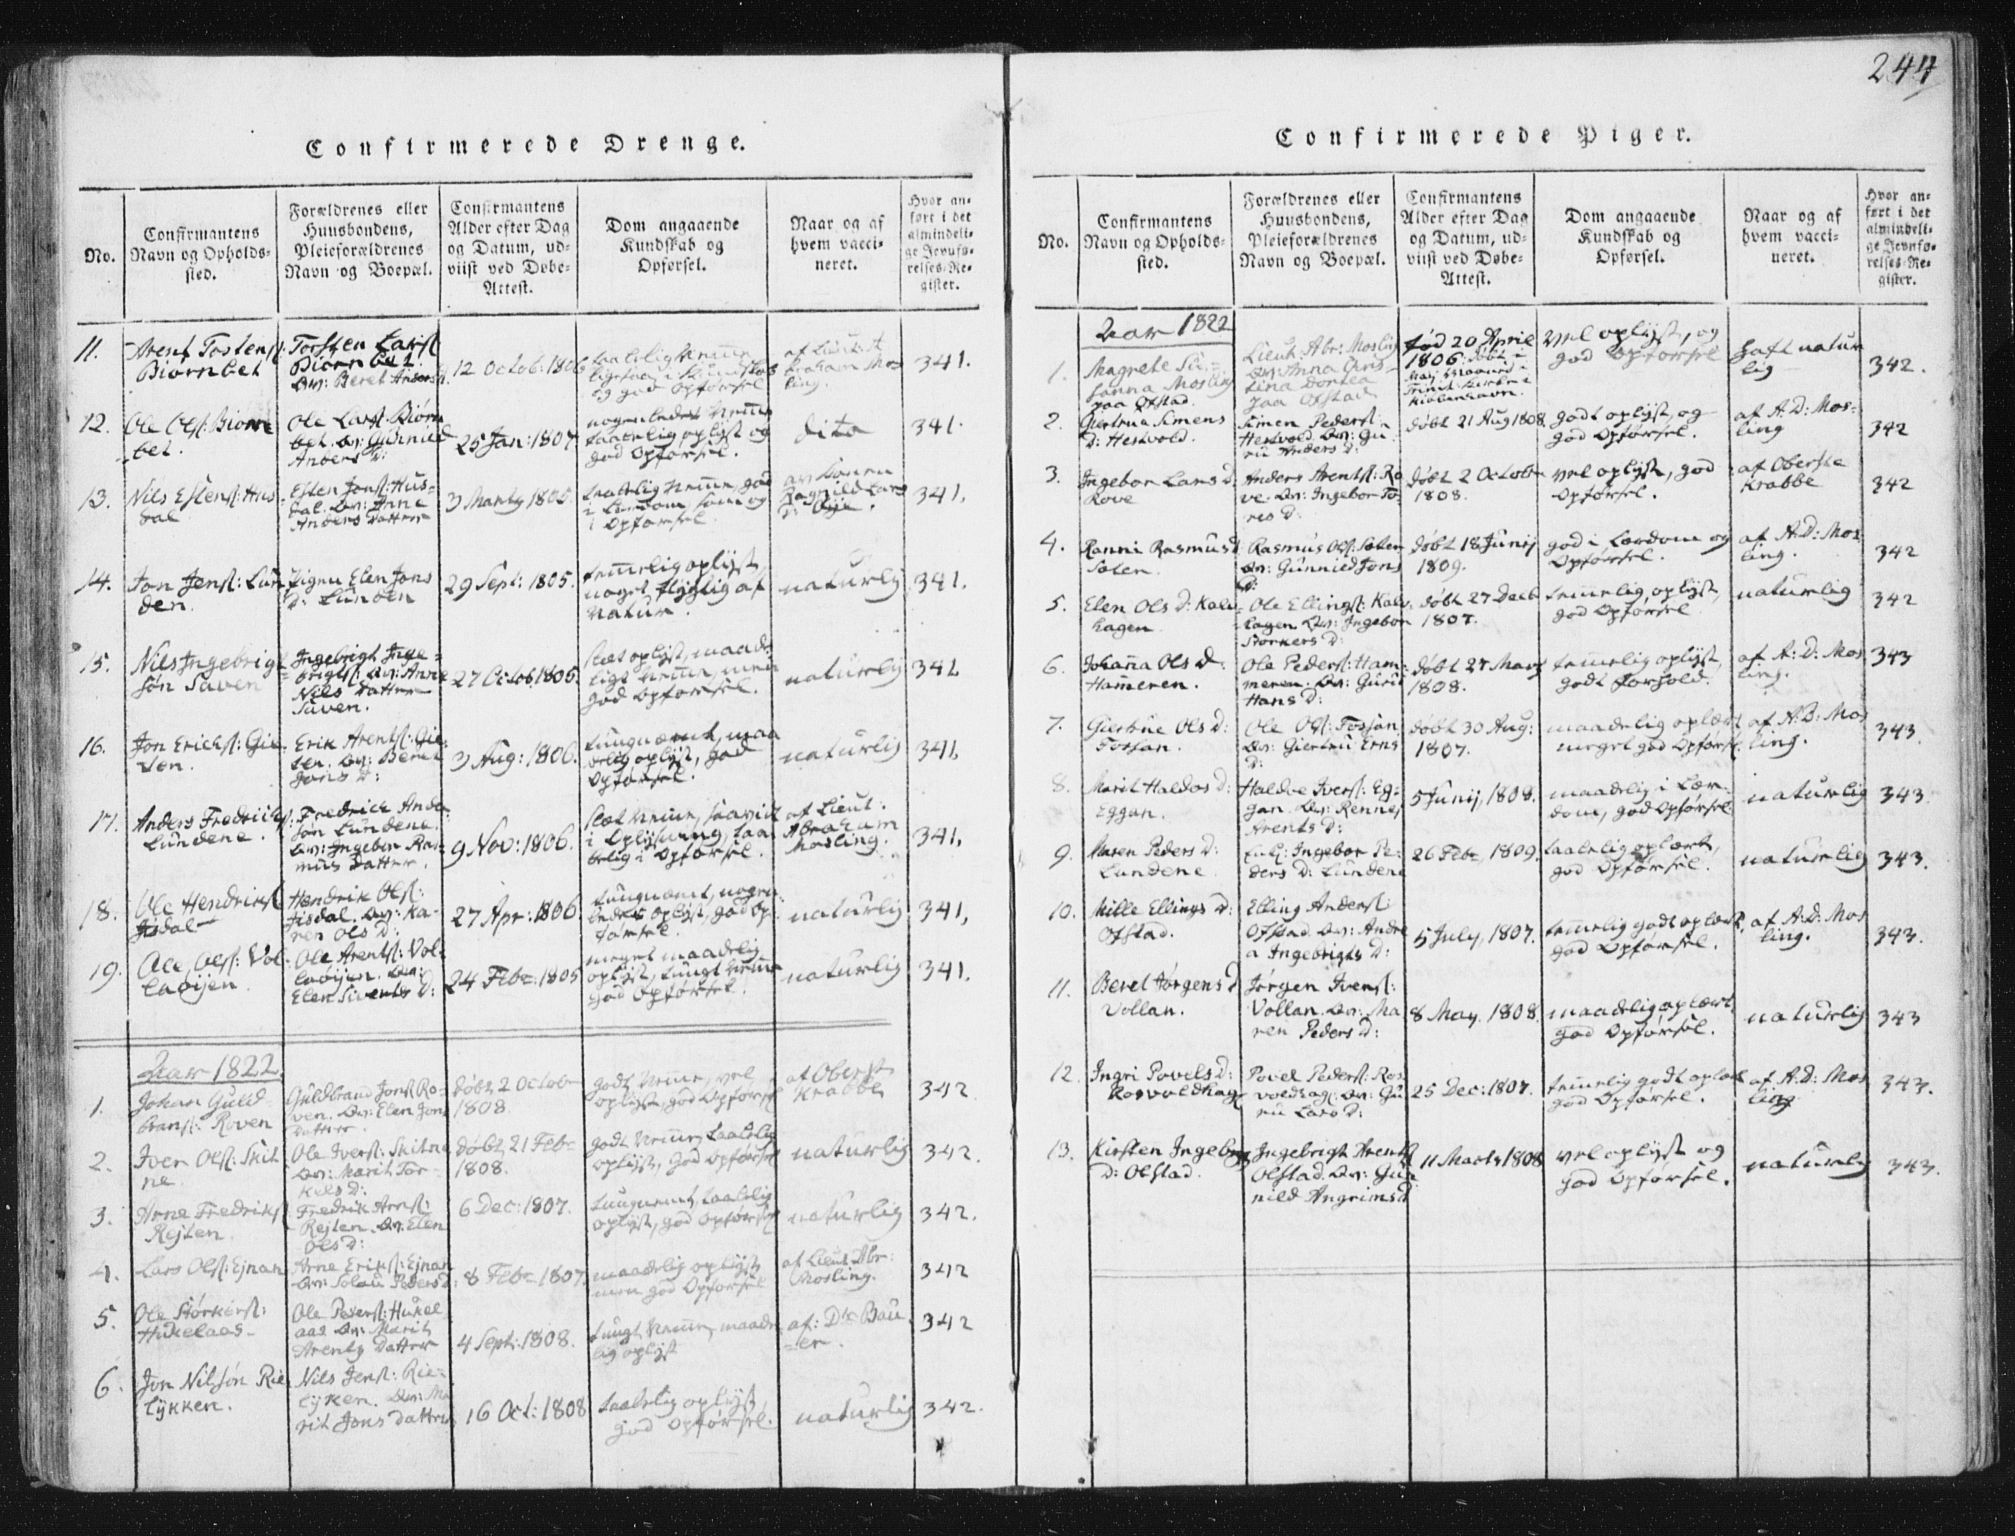 244
Confirmerede Drenge.
No.
Confirmantens
Navn og Opholds-
sted.
Forældrenes eller
Huusbondens,
Pleieforældrenes
Navn og Boepæl.
Confirmantens
Alder efter Dag
og Datum, ud-
viist ved Døbe-
Attest.
Dom angaaende
Kundskab og
Opførsel.
Naar og af
hvem vacci-
neret.
Hvor an-
ført i det
almindeli-
ge Jevnfø-
relses-Re-
gister.
11.
Arent Tostens:
Biørnbet
Torsten Lars:
Biørnbet.
Beret Anders
12 Octob: 1806
og god Opførsel
af Lieut: A
braham Mos
ling.
341.
12.
Ole Ols: Biørn
bet.
Ole Lars: Biørn
bet.
Anders D:
25 Jan: 1807
nogenledes
taalelig oplyst og
god Opførsel.
dito
341.
13.
Nils Estens: Hus-
dal
Esten Jons: Hus-
dal. Anne
Anders Datter
3 Marty 1805.
i Opførsel.
Ragnild Lars
D: Øye.
341.
14.
Jon Jens: Lun
den.
Pigen Elen Jons
D: Lunden
29 Sept: 1805.
temelig oplyst,
noget flygtig af
Natur.
naturlig
341.
15.
Nils Ingebrigt
søn Saven
Ingebrigt Inge-
brigts: Anne
Nils Datter
Saven.
27 Octob. 1806.
slet oplyst, maade
god Opførsel.
naturlig
341
16.
Jon Erichs: Gie-
ten.
Erik Arents: Gie-
ten. Beret
Jons D:
3 Aug: 1806.
tungnæmt, maa
delig oplyst, god
Opførsel.
naturlig
341,
17.
Anders Fredrichs
Lundene.
Fredrich Ander
søn Lundene.
Ingebor Ras-
mus Datter.
9 Nov: 1806.
i Oplysning, taa
lelig i Opførsel.
af Lieut:
Abraham
Mosling.
341,
18.
Ole Hendriks
Jisdal
Hendrik Ols:
Jisdal. Ka-
ren Ols D:
27 Apr: 1806.
tungnæmt, nogen
ledes oplyst, god Op-
førsel.
naturlig
341,
19.
Ole Ols: Vol-
laøijen
Ole Arents: Vol-
laøijen.
Elen Sivents D:
24 Febr: 1805
meget maadelig
oplyst, tungt Nemme
god Opførsel.
naturlig
341.
Aar 1822.
1.
Johan Guld-
brans: Roven
Guldbrand Jons: Ro-
ven. Elen Jons
Datter.
døbt 2 Octobr
1808.
godt Nemme, vel
oplyst, god Opførsel
af Oberst
Krabbe
342
2.
Iver Ols: Skit
ne.
Ole Ivers: Skitne
Marit Tor-
kels D:
døbt 21 Feb-
1808.
godt Nemme, taalelig
oplyst, god Opførsel
naturlig
342.
3.
Arne Fredriks
Rejten.
Fredrik Arns:
Rejten. Elen
Ols D:
6 Dec: 1807.
tungnæmt, taalelig
oplyst, god Opførsel
naturlig
342.
4.
Lars Ols: Ejnan
Arne Eriks: Ejnan
Solau Peders D:
8 Febr 1807.
maadelig oplyst
men god Opførsel
af Lieut. Abr:
Mosling.
342
5.
Ole Størkers:
Hukelaas
Ole Peders: Hukel
aas Marit
Arents Datter
4 Sept: 1808.
tungt Nemme, maade
lig oplyst
af: Dr Bau
er.
342
6.
Jon Nilsøn Rie
lykken.
Nils Jens: Rie-
lyken. Ma
rit Jons Datter
16 Oct: 1808
taalelig oplyst,
god Opførsel.
naturlig
342.
Confirmerede Piger.
No.
Confirmantens
Navn og Opholds-
sted.
Forældrenes eller
Huusbondens,
Pleieforældrenes
Navn og Boepæl.
Confirmantens
Alder efter Dag
og Datum, ud-
viist ved Døbe-
Attest.
Dom angaaende
Kundskab og
Opførsel.
Naar og af
hvem vacci-
neret.
Hvor an-
ført i det
almindeli-
ge Jevnfø-
relses-Re-
gister.
Aar 1822
1.
Magrete Su-
sanna Mosling
paa Ofstad.
Lieut: Abr: Mosling
Anna Chris-
tina Dortea
paa Ofstad
Fød 20 Aprie
1806. døbt i
Kiøbenhavn.
vel oplyst, og
god Opførsel
haft natur
lig
342.
2.
Giertrua Simens
D: Hestvold.
Simen Peders:
Hestvold. Gu-
ru Anders D:
døbt 21 Aug 1808.
godt oplyst, og
god Opførsel.
af A: D: Mos-
ling
342
3.
Ingebor Lars D
Rove
Anders Arents: Ro
ve. Ingebor To-
res D:
døbt 2 Octobr
1808.
vel oplyst, god
Opførsel.
af Oberste
Krabbe
342
4.
Ranni Rasmus D
Soten
Rasmus Ols: Soten
Gunnied Jons
D:
døbt 18 Junij
1809.
god i Lærdom og
Opførsel.
af A: D: Mos
ling.
342
5.
Elen Ols D: Kalv-
hagen
Ole Ellings: Kalv-
hagen. Ingebor
Størkers D:
døbt 27 Decb
1807.
temelig oplyst,
god Opførsel
naturlig
342
6.
Johanna Ols D:
Hameren.
Ole Peders: Ham-
meren. Guru
Hans D:
døbt 27 Marty
1808.
temelig oplyst,
godt Forhold.
af A: D: Mos
ling.
343
7.
Giertrue Ols D:
Fossan.
Ole Ols: Fossan
Giertru Erns
D:
døbt 30 Aug:
1807.
maadelig oplært
meget god Opførsel.
af A: D: Mos
ling.
343.
8.
Marit Haldos D:
Eggan.
Haldoe Ivers: Eg-
gan. Rennes
Arents D:
5 Junij 1808.
maadelig i Lær-
dom, god Opførsel
naturlig
343.
9.
Maren Peders D:
Lundene
Ingebor Pe-
ders D: Lundene
26 Febr. 1809.
taalelig oplært,
god Opførsel.
naturlig
343.
10.
Mille Ellings D:
Ofstad.
Elling Anders:
Ofstad. Andre
a Ingebrigts D:
5 July, 1807.
temmelig godt oplært,
god Opførsel.
af A: D: Mos
ling.
343.
11.
Beret Jørgens D
Vollan.
Jørgen Ivers:
Vollan. Ma
ren Peders D:
8 May. 1808.
maadelig oplært
god Opførsel.
naturlig
343
12.
Ingri Povels D:
Rosvoldhag:
Povel Peders: Ros
voldhag: Gu
ru Lars D:
25 Dec: 1807.
temelig godt oplært
god Opførsel.
af A: D: Mos
ling
343.
13.
Kirsten Ingebrigts
D: Olstad.
Ingebrigt Arents
Olstad. Gun
nild Angrims D
11 Marty 1808
vel oplyst og
god Opførsel.
naturlig
343.